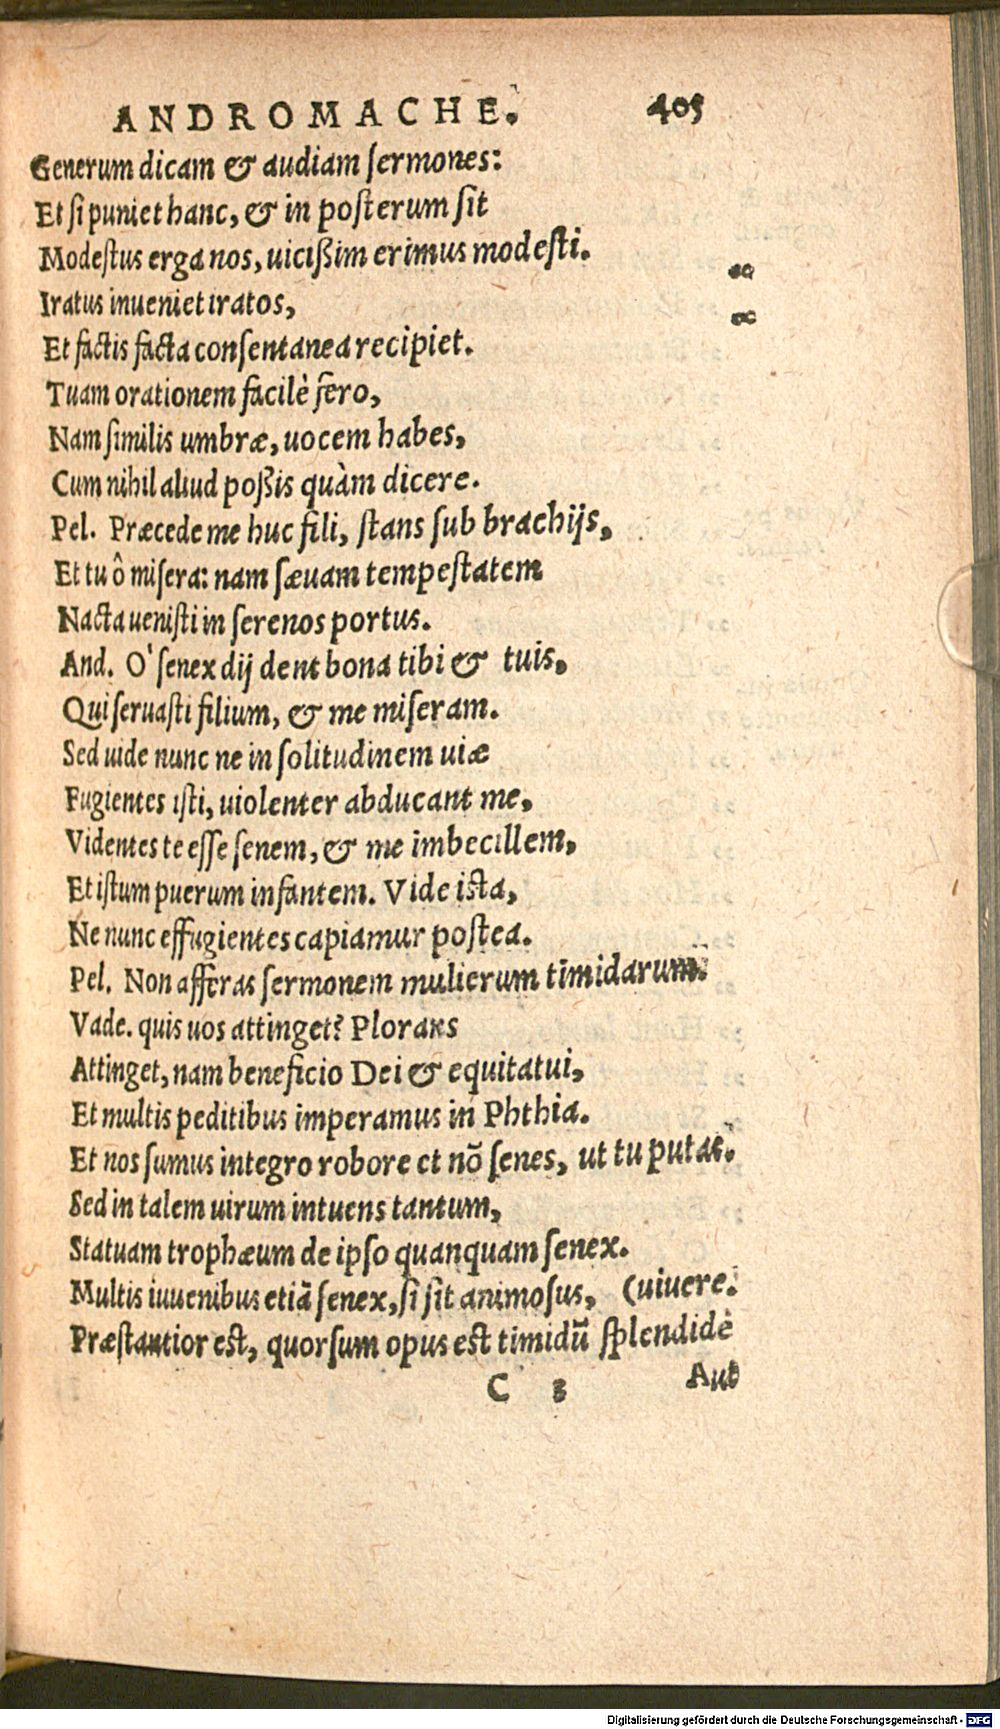 ANDROMACHE. 405
Generum dicam & audiam ſermones:
Et ſi puniet hanc, & in poſterum ſit
Modeſtus erga nos, uicißim erimus modeſti.
Iratus inueniet iratos,
Et factis facta conſentanea recipiet.
Tuam orationem facilè fero,
Nam ſimilis umbræ, uocem habes,
Cum nihil aliud poßis quàm dicere.
Pel. Præcede me huc fili, ſtans ſub brachijs,
Et tu ô miſera: nam ſæuam tempeſtatem
Nacta ueniſti in ſerenos portus.
And. O' ſenex dij dent bona tibi & tuis,
Qui ſeruaſti filium, & me miſeram.
Sed uide nunc ne in ſolitudinem uiæ
Fugientes iſti, uiolenter abducant me,
Videntes te eſſe ſenem, & me imbecillem,
Et iſtum puerum infantem. Vide iſta,
Ne nunc effugientes capiamur poſtea.
Pel. Non afferas ſermonem mulierum timidarum.
Vade. quis uos attinget? Plorans
Attinget, nam beneficio Dei & equitatui,
Et multis peditibus imperamus in Phthia.
Et nos ſumus integro robore et nõ ſenes, ut tu putas.
Sed in talem uirum intuens tantum,
Statuam trophæum de ipſo quanquam ſenex.
Multis iuuenibus etiã ſenex, ſi ſit animoſus, (uiuere.
Præſtantior eſt, quorſum opus eſt timidũ ſplendidè
C 3 Aut
Digitalisierung gefördert durch die Deutsche Forschungsgemeinschaft - DFG